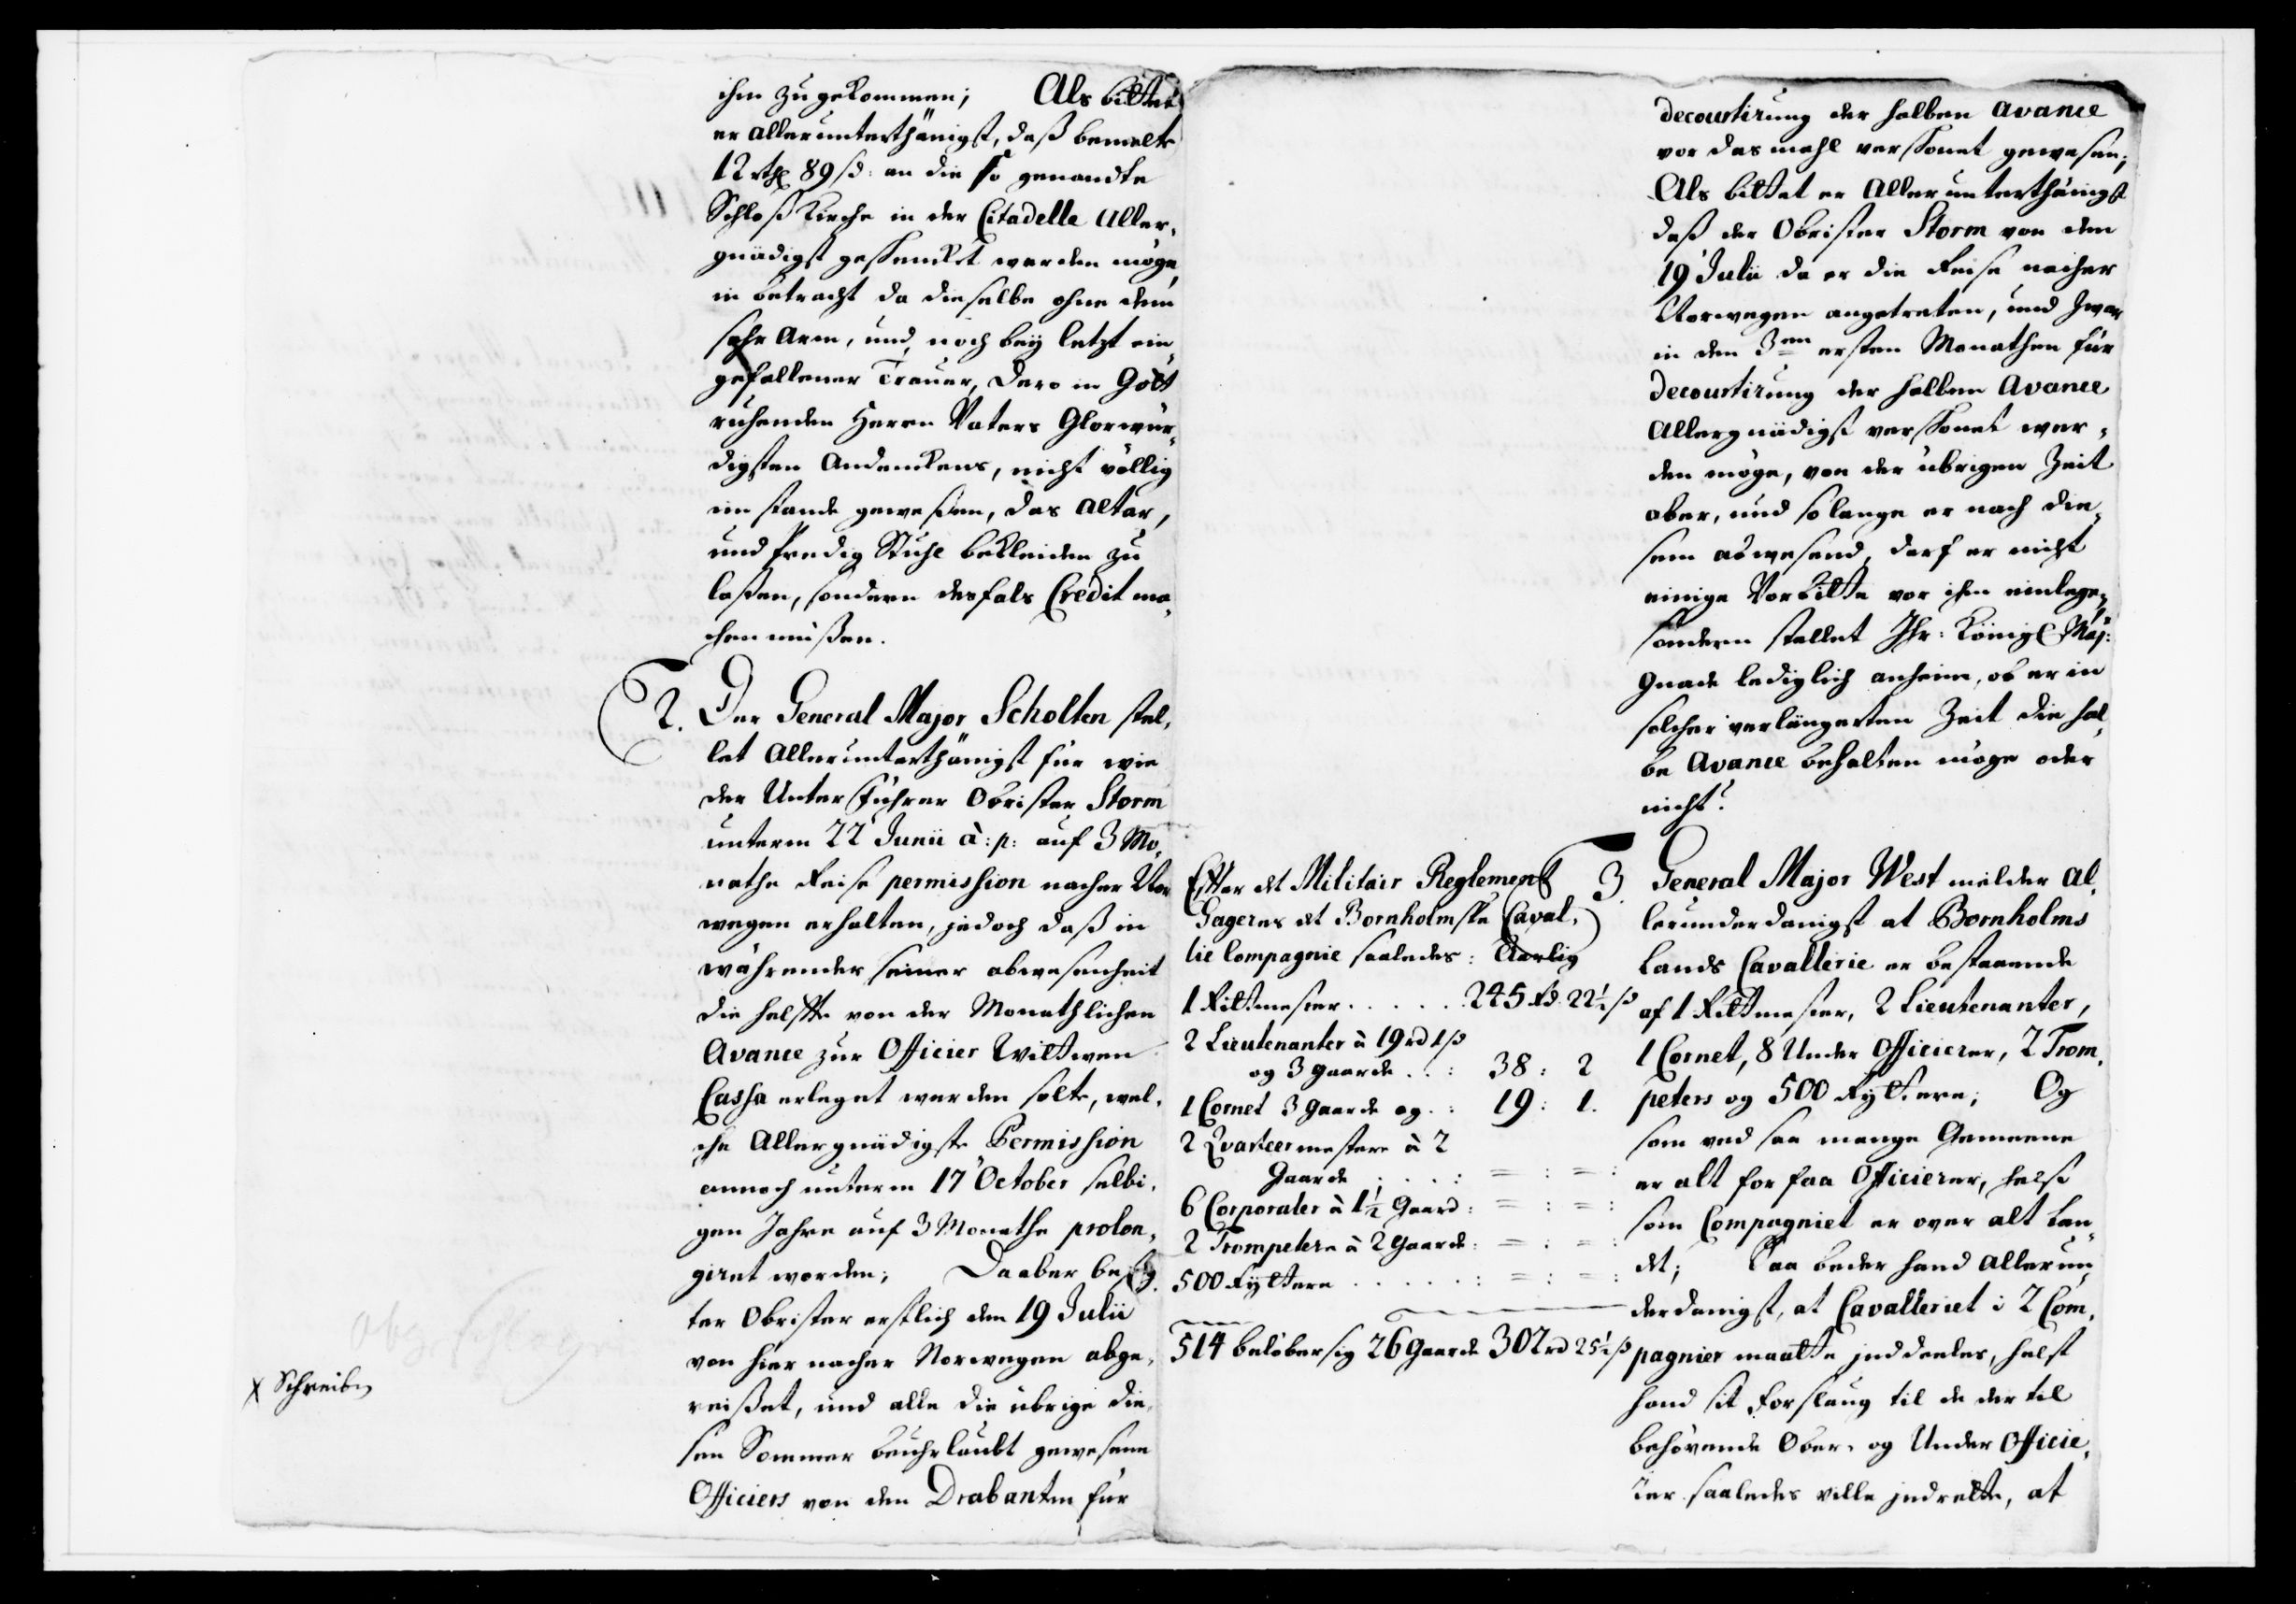 ihm zugekommen; Als bittet
er allerunterthänigst, daß bemelte
12 rth 89 sß: an die so genandte
Schloß Kirche in der Citadelle Aller-
gnädigst geschenckt werden möge,
in betracht da dieselbe ohne dem
sehr Arm, und noch beÿ letzt ein-
gefallener Trauer, Dero in Gott
ruhenden Herrn Vaters Glorwür-
digsten Andenckens, nicht völlig
im stande gewesen, das Altar,
und Predig Stuhl bekleiden zu
laßen, sondern desfals Credit ma-
chen müßen.
2. Der General Major Scholten stel-
let Allerunterthänigst für wie
der Unter Führer Obrister Storm
unterm 22 Junii à: p: auf 3 Mo-
nathe Reise permission nacher Nor
wegen erhalten, jedoch daß in
währender seiner abwesenheit
die helffte von der Monathlichen
Avance zur Officier Wittwen
Cassa erleget werden solte, wel-
che Allergnädigste Permission
annoch unterm 17 October selbi-
gen Jahrs auf 3 Monathe prolon-
giret worden; Da aber besag-
ter Obrister erstlich den 19 Julii
von hier nacher Norwegen abge-
reißet, und alle die übrige die-
sen Sommer beuhrlaubt gewesene
Officiers von den Drabanten für
x Schreiben
decourtirung der halben avance
vor das mahl verschonet gewesen;
Als bittet er Allerunterthänigst
daß der Obrister Storm von dem
19 Julii da er die Reise nacher
Norwegen angetreten, und zwar
in den 3en ersten Monathen für
decourtirung der halben Avance
Allergnädigst verschonet wer-
den möge, von der übrigen Zeit
aber, und so lange er nach die-
sem abwesend, darf er nicht
einige Vorbitte vor ihm einlegen,
sondern stellet Ihr: Königl Maj:
Gnade lediglich anheim, ob er in
solcher verlängerten Zeit die hal-
be Avance behalten möge oder
nicht?
Efter det Militair Reglement
Gageres det Bornholmske Caval-
lie Compagnie saaledes: Aarlig
1 Rittmester . . . . . 245 rd. 22½ sß
2 Lieutenanter à 19 rd 1 sß
og 3 gaarde . . : 38 : 2
1 Cornet 3 gaarde og . : 19 : 1.
2 Qvarteermestere à 2
Gaarde . . . . : = : = :
6 Corporaler à 1½ Gaard : = : = :
2 Trompetere à 2 Gaarde : = : = :
500 Ryttere . . . . . : = : = :
514 beløber sig 26 Gaarde 302 rd 25½ sß
3. General Major West melder al-
lerunderdanigst at Bornholms
Lands Cavallerie er bestaaende
af 1 Rittmester, 2 Lieutenanter,
1 Cornet, 8 Under Officierer, 2 Trom-
peters og 500 Ryttere; Og
som ved saa mange Gemeene
er alt for faa Officierer, helst
som Compagniet er over alt Lan-
det; Saa beder hand allerun-
derdanigst, at Cavalleriet i 2 Com-
pagnier maatte inddeeles, helst
hand sit forslaug til de dertil
behövende Ober- og Under Officie-
rer saaledes ville indrette, at